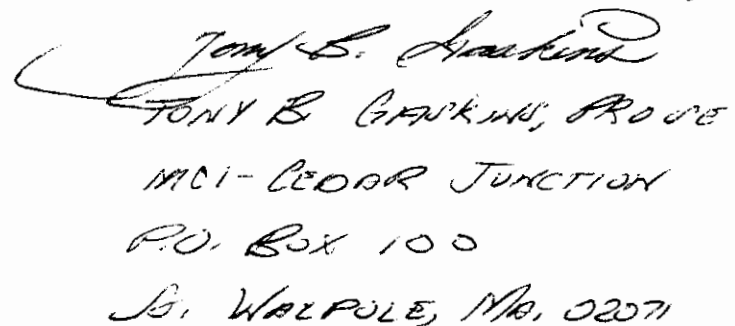 Tony B. Gaskins
TONY B. GASKINS, PRO SE
MCI-CEDAR JUNCTION
P.O. BOX 100
So. WALPOLE, MA. 02071